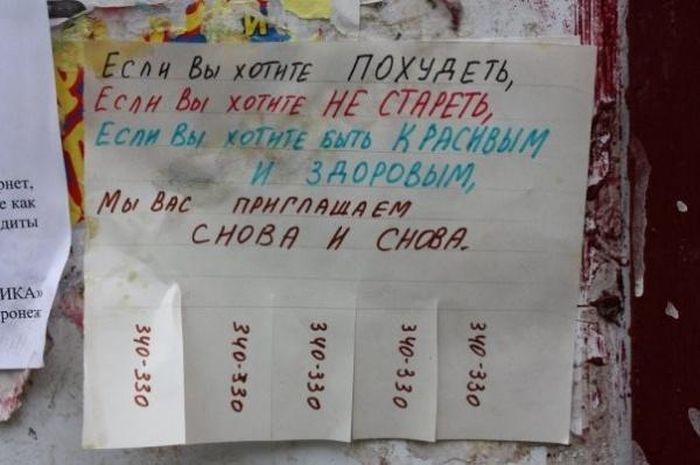 Если Вы хотите ПОХУДЕТЬ,
Если Вы хотите НЕ СТАРЕТЬ,
Если Вы хотите быть КРАСИВЫМ
И ЗДОРОВЫМ,
Мы Вас приглашаем
СНОВА И СНОВА.
340-330
340-330
340-330
340-330
340-330
рнет,
е как
диты
ИКА»
ронеж